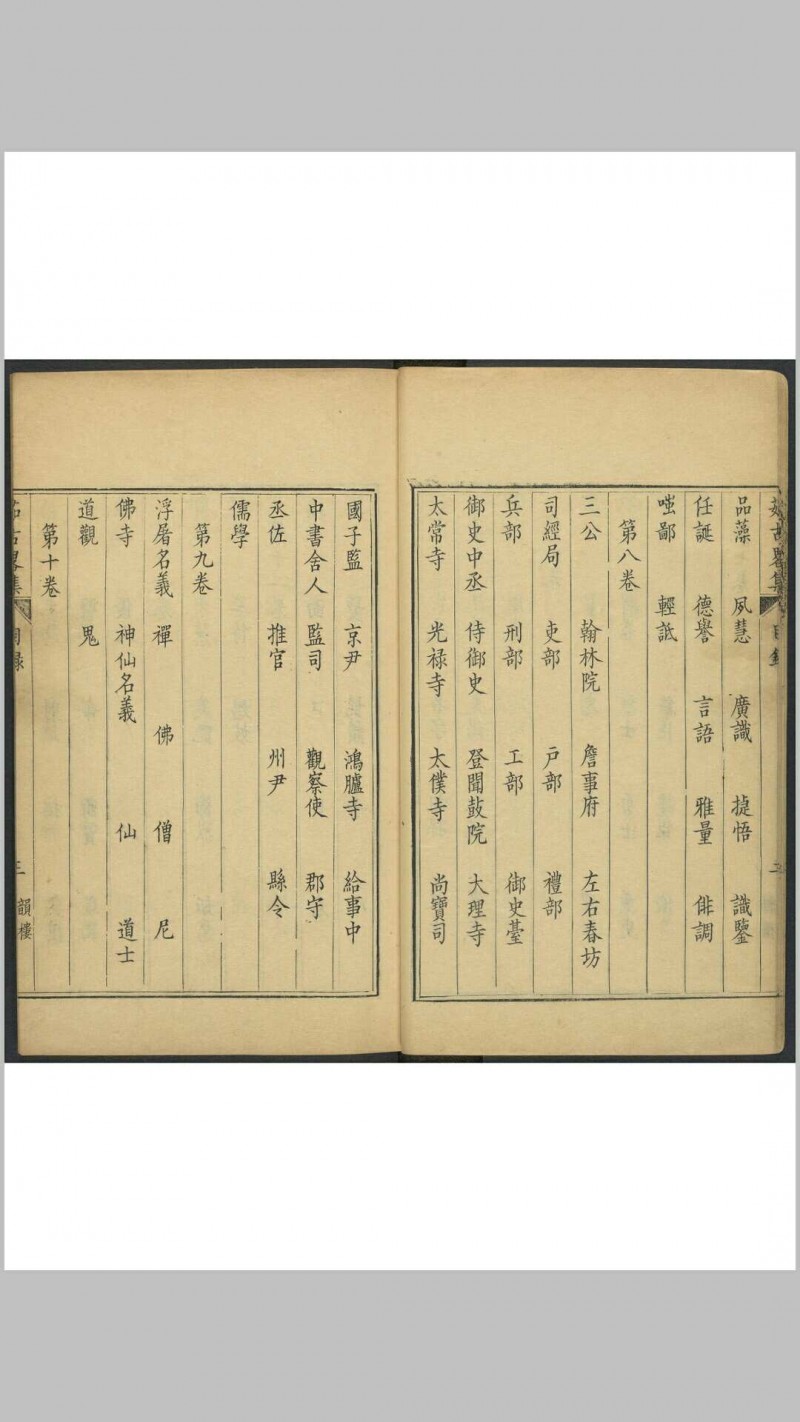 品藻 夙慧 廣識 㨗悟 識鑒
任誕 德譽 言語 雅量 俳調
嗤鄙 輕詆
第八卷
三公 翰林院 詹事府 左右春坊
司經局 吏部 户部 禮部
兵部 刑部 工部 御史臺
御史中丞 侍御史 登聞鼓院 大理寺
太常寺 光禄寺 太僕寺 尚寶司
國子監 京尹 鴻臚寺 給事中
中書舍人 監司 觀察使 郡守
丞佐 推官 州尹 縣令
儒學
第九卷
浮屠名義 禪 佛 僧 尼
佛寺 神仙名義 仙 道士
道觀 鬼
第十卷
韻樓